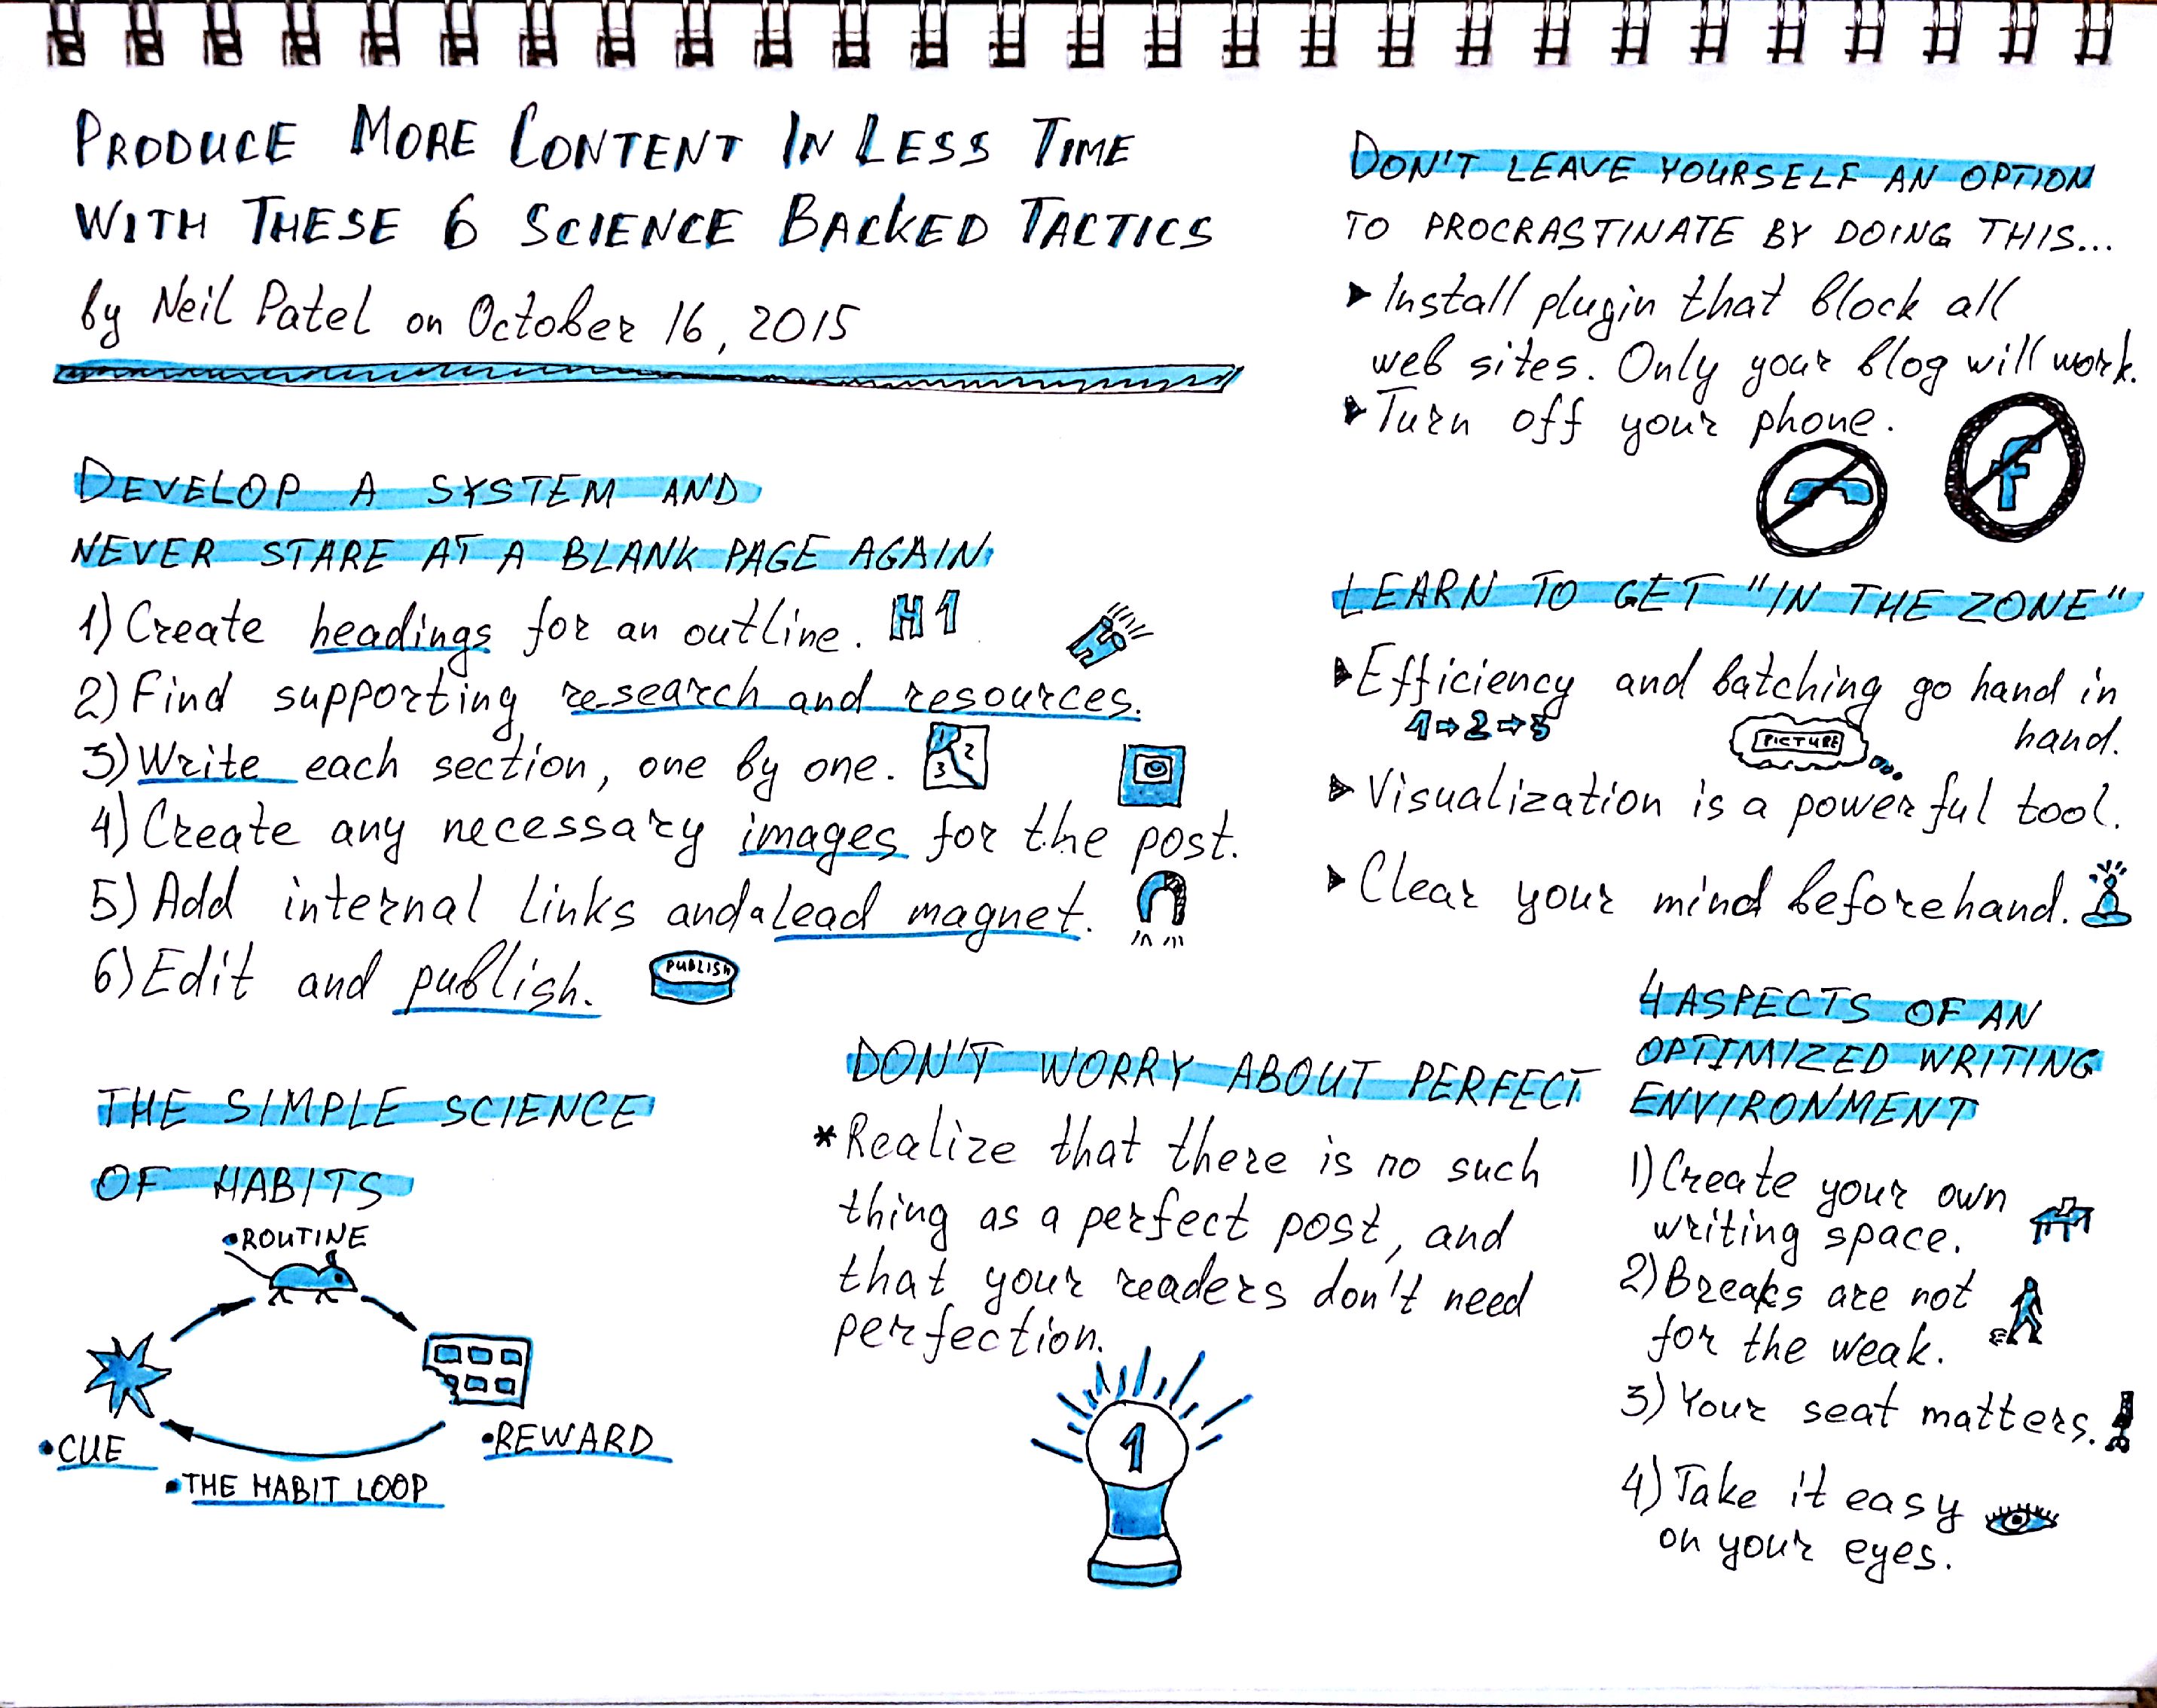 PRODUCE MORE CONTENT IN LESS TIME
WITH THESE 6 SCIENCE BACKED TACTICS
by Neil Patel on October 16, 2015
DEVELOP A SYSTEM AND
NEVER STARE AT A BLANK PAGE AGAIN
1) Create headings for an outline. H1
2) Find supporting research and resources.
3) Write each section, one by one.
1 2
3
4) Create any necessary images for the post.
5) Add internal links and a lead magnet.
6) Edit and publish.
PUBLISH
THE SIMPLE SCIENCE
OF HABITS
•ROUTINE
•CUE
•REWARD
•THE HABIT LOOP
DON'T WORRY ABOUT PERFECT
*Realize that there is no such
thing as a perfect post, and
that your readers don't need
perfection.
1
DON'T LEAVE YOURSELF AN OPTION
TO PROCRASTINATE BY DOING THIS...
▸Install plugin that block all
web sites. Only your blog will work.
▸Turn off your phone.
f
LEARN TO GET "IN THE ZONE"
▸Efficiency and batching go hand in
hand.
1⇒2⇒3
PICTURE
▸Visualization is a powerful tool.
▸Clear your mind beforehand.
4 ASPECTS OF AN
OPTIMIZED WRITING
ENVIRONMENT
1) Create your own
writing space.
2) Breaks are not
for the weak.
3) Your seat matters.
4) Take it easy
on your eyes.